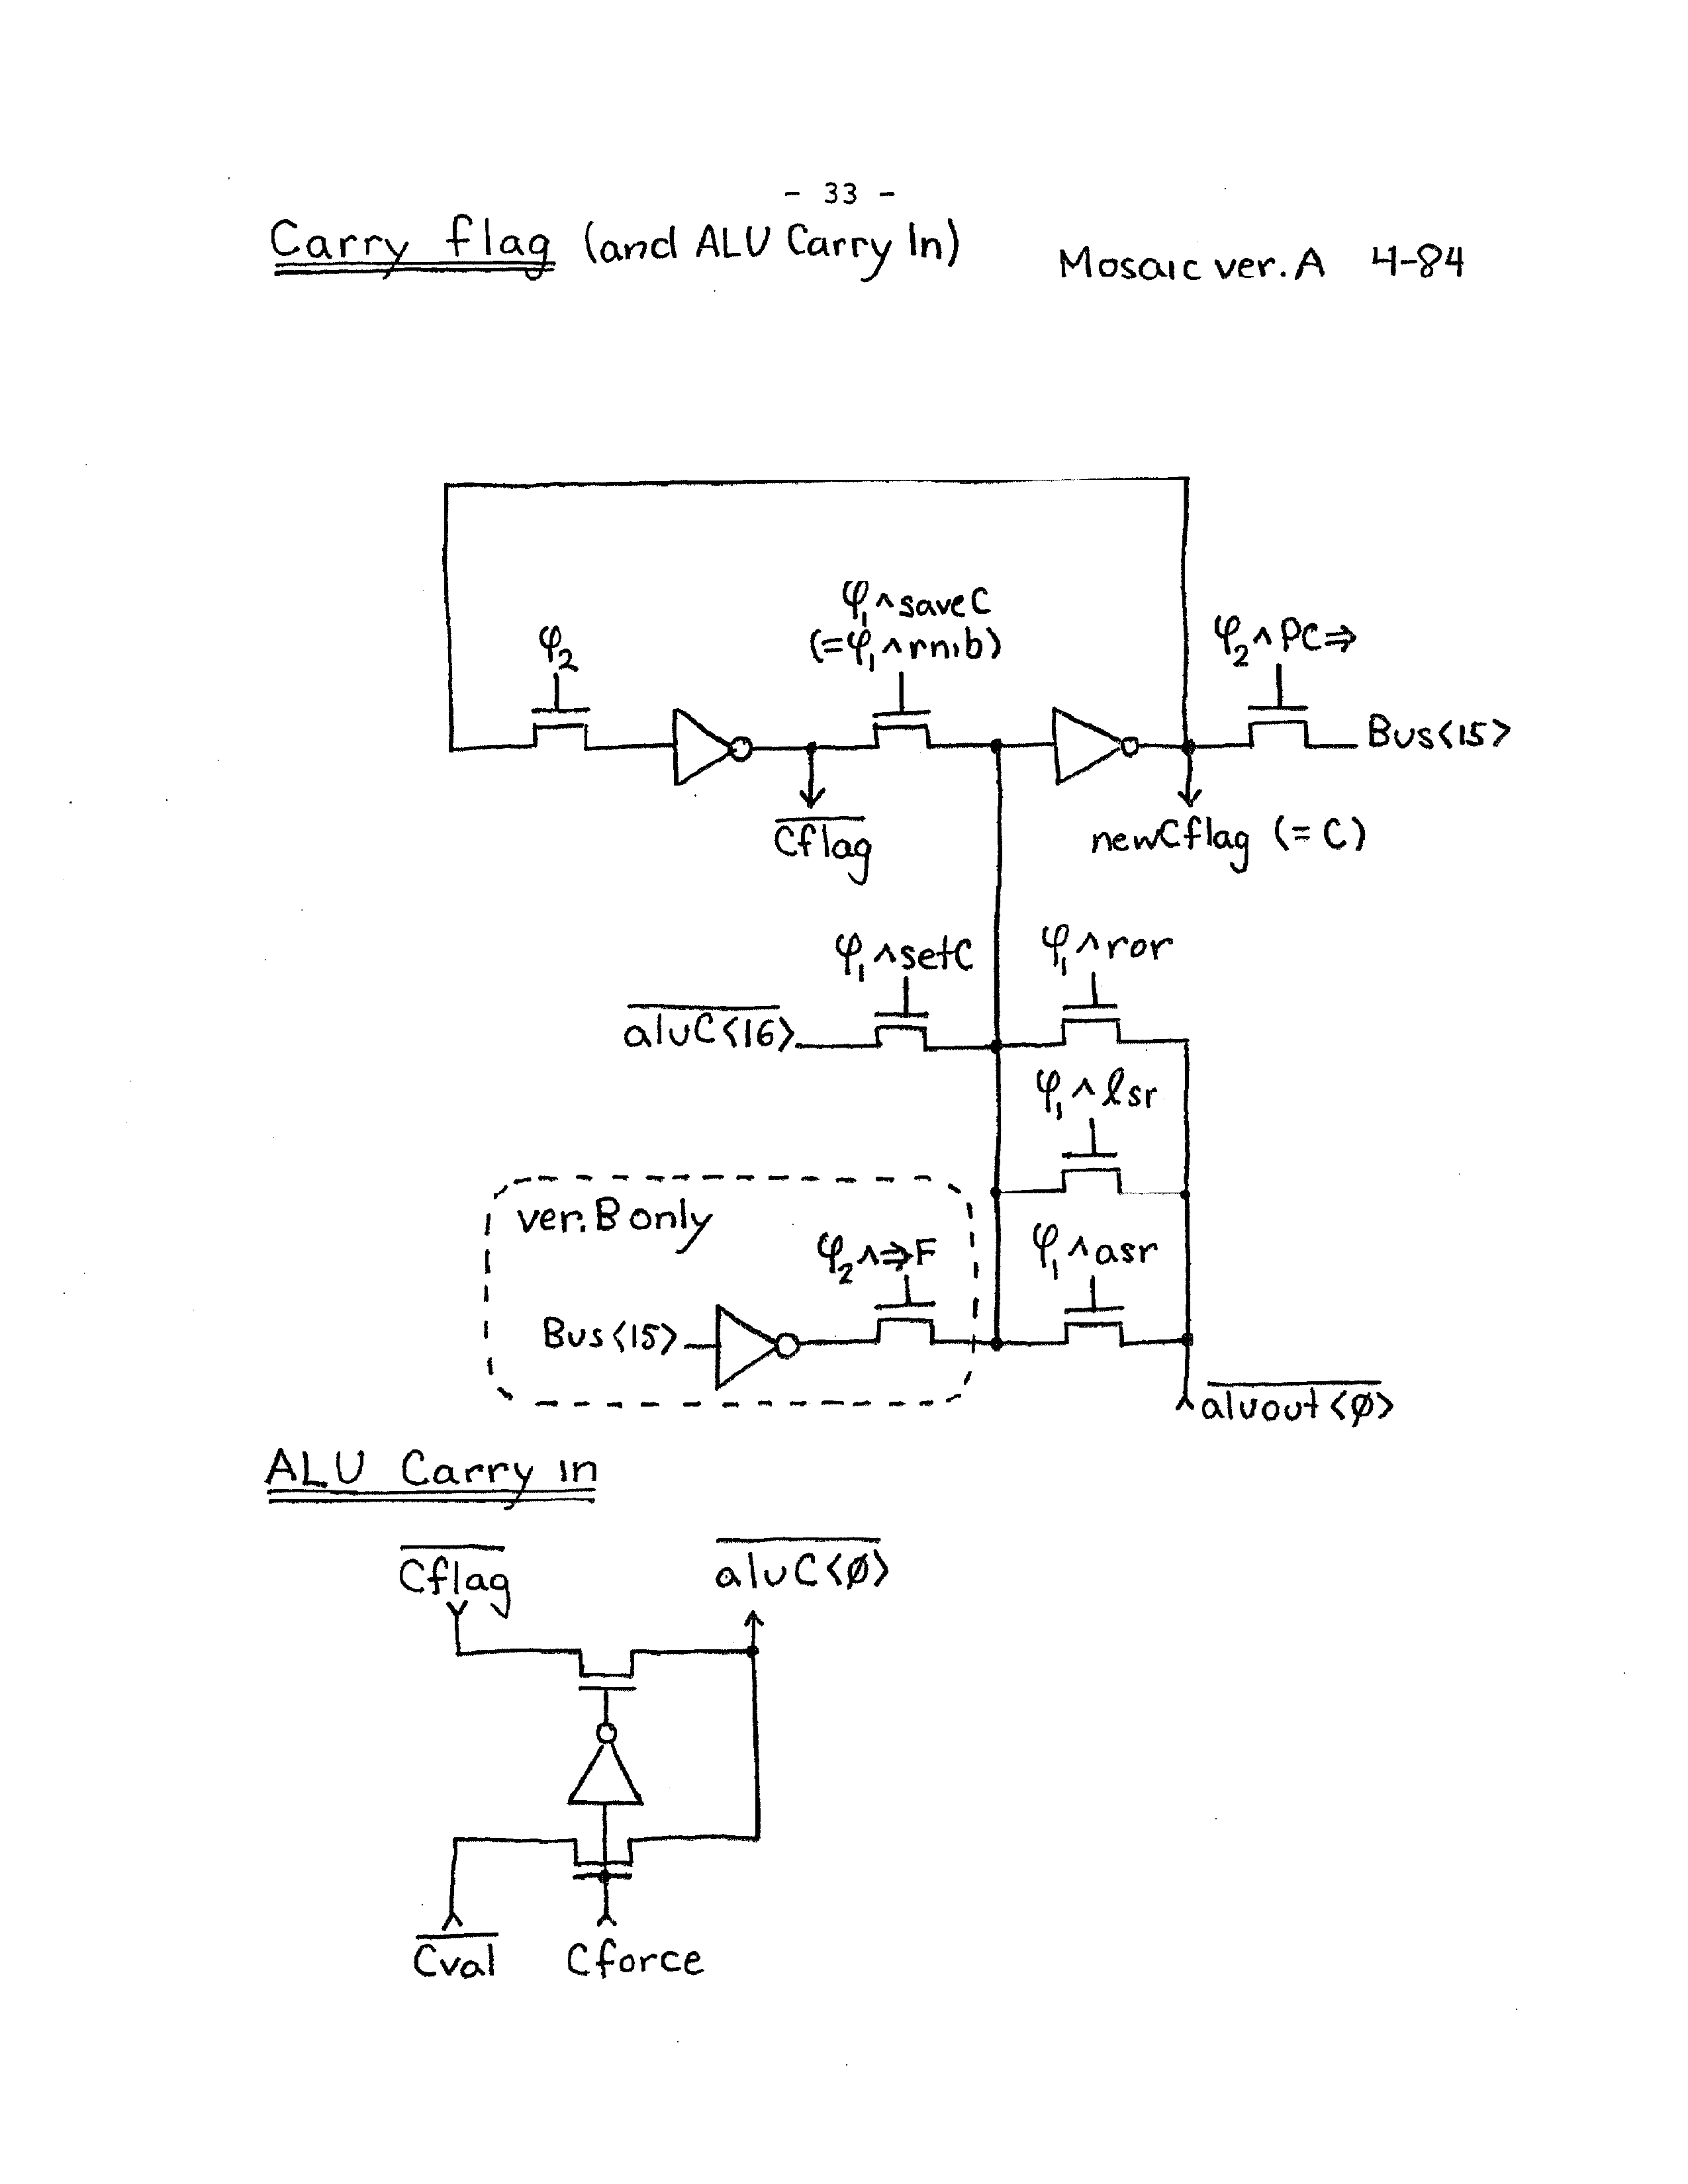 - 33 -
Carry flag (and ALU Carry In)
Mosaic ver. A 4-84
φ₁∧saveC
(=φ₁∧rnib)
φ₂
φ₂∧PC⇒
Bus<15>
C̅f̅l̅a̅g̅
newCflag (= C)
φ₁∧setC
φ₁∧ror
a̅l̅u̅C̅<̅1̅6̅>̅
φ₁∧lsr
ver. B only
φ₂∧⇒F
φ₁∧asr
Bus<15>
a̅l̅u̅o̅u̅t̅<̅Ø̅>̅
ALU Carry in
C̅f̅l̅a̅g̅
a̅l̅u̅C̅<̅Ø̅>̅
C̅v̅a̅l̅
Cforce